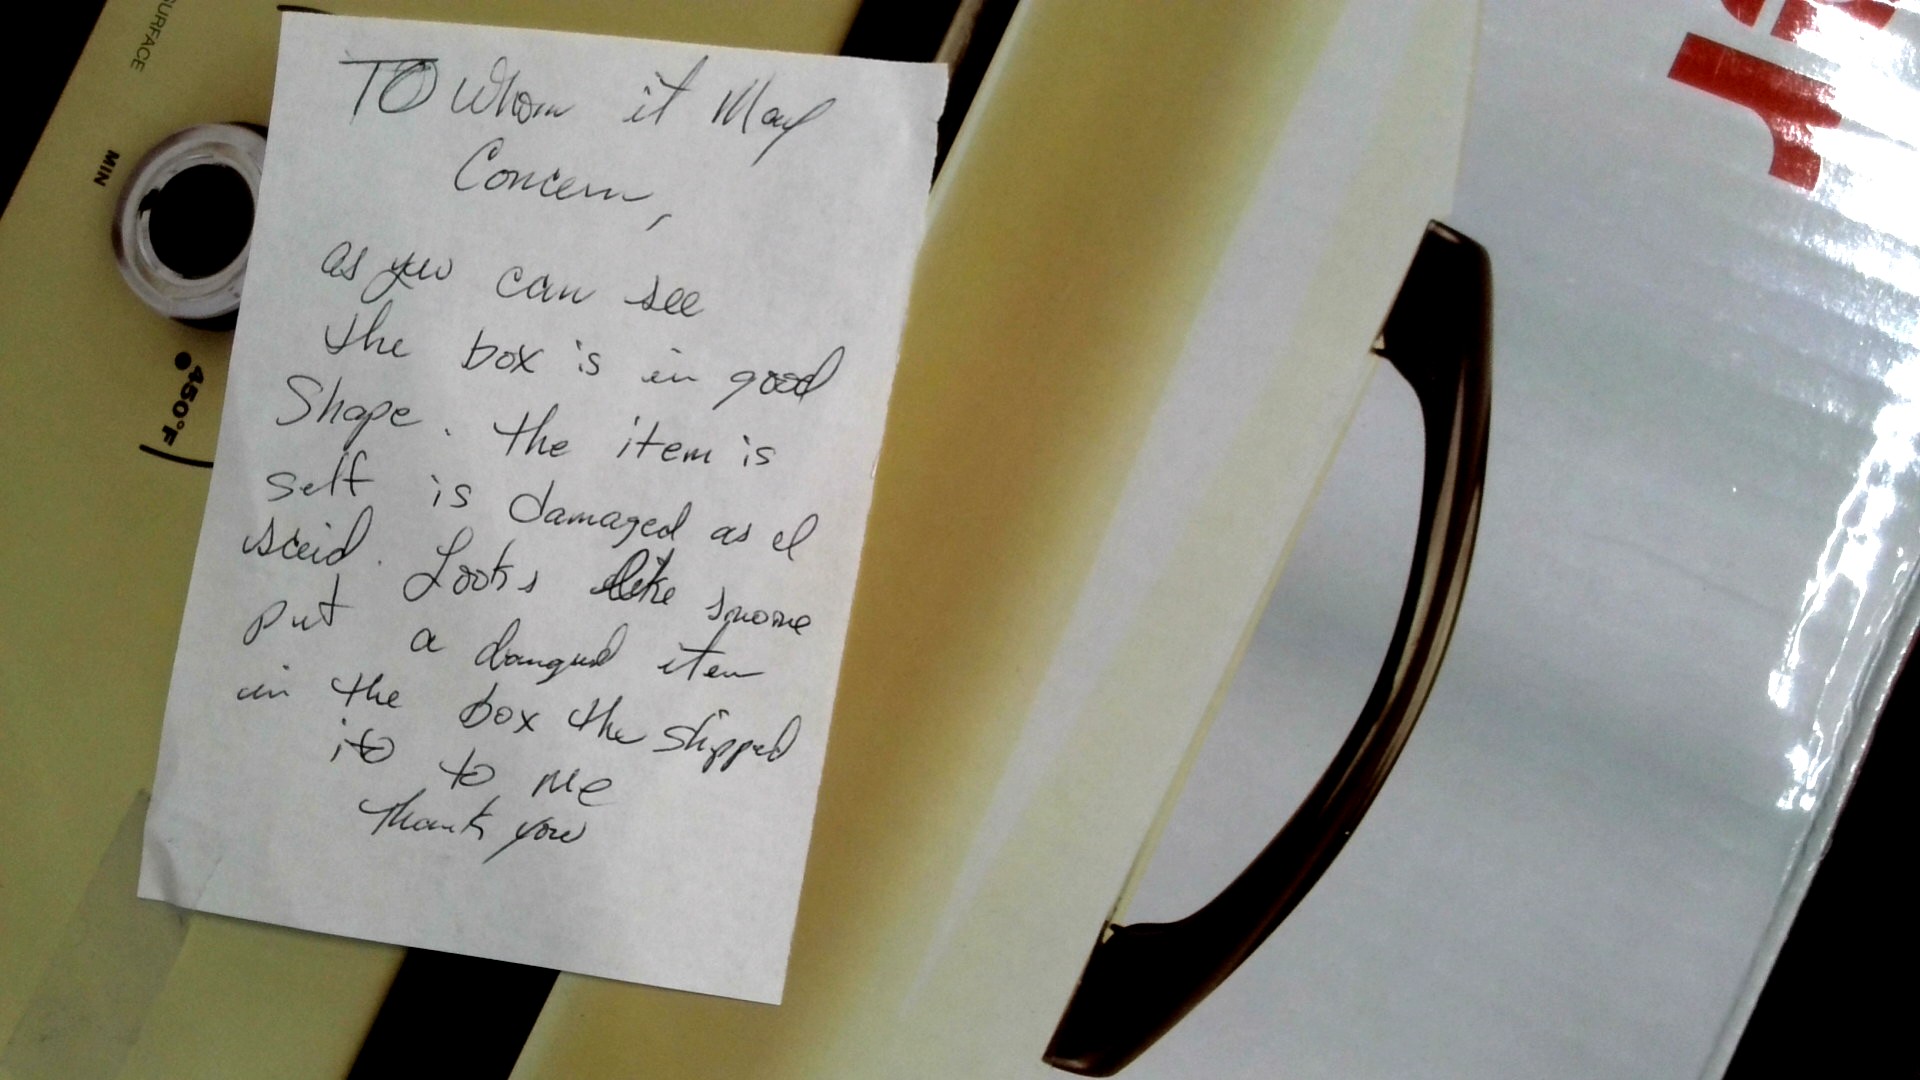 TO Whom it May
Concern,
as you can see
the box is in good
Shape. the item is
self is damaged as I
said. Looks like
put a damged item
in the box the shipped
it to me
Thank you
SURFACE
MIN
450°F